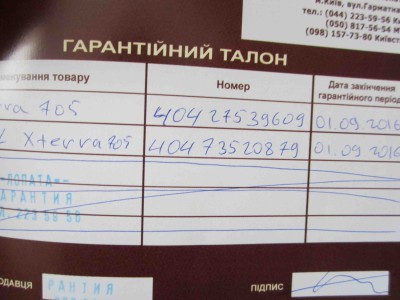 м.Київ, вул.Гарматна
тел.: (044) 223-59-56
(050) 817-56-54
(098) 157-73-80 Київст
ГАРАНТІЙНИЙ ТАЛОН
менування товару Номер Дата закінчення
гарантійного період
rra 705 40427539609 01.09.2016
Xterra 705 40473520879 01.09.2016
ЛОПАТА
АРАНТИЯ
223 56 56
ОДАВЦЯ РАНТИЯ ПІДПИС